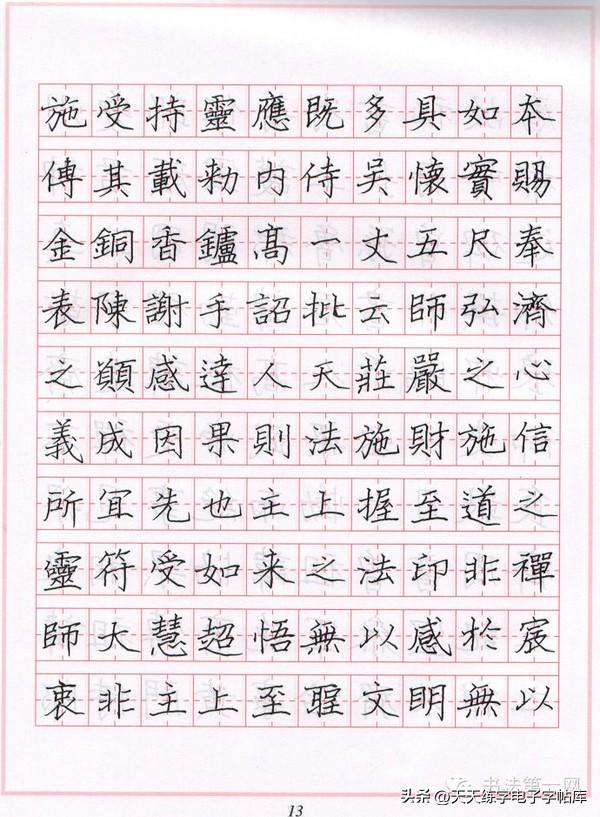 施受持靈應既多具如本
傳其載勑内侍吳懷實賜
金銅香鑪高一丈五尺奉
表陳謝手詔批云師弘濟
之願感達人天莊嚴之心
義成因果則法施財施信
所冝先也主上握至道之
靈符受如来之法印非禪
師大慧超悟無以感於宸
衷非主上至聖文明無以
13
书法第一网
头条 @天天练字电子字帖库